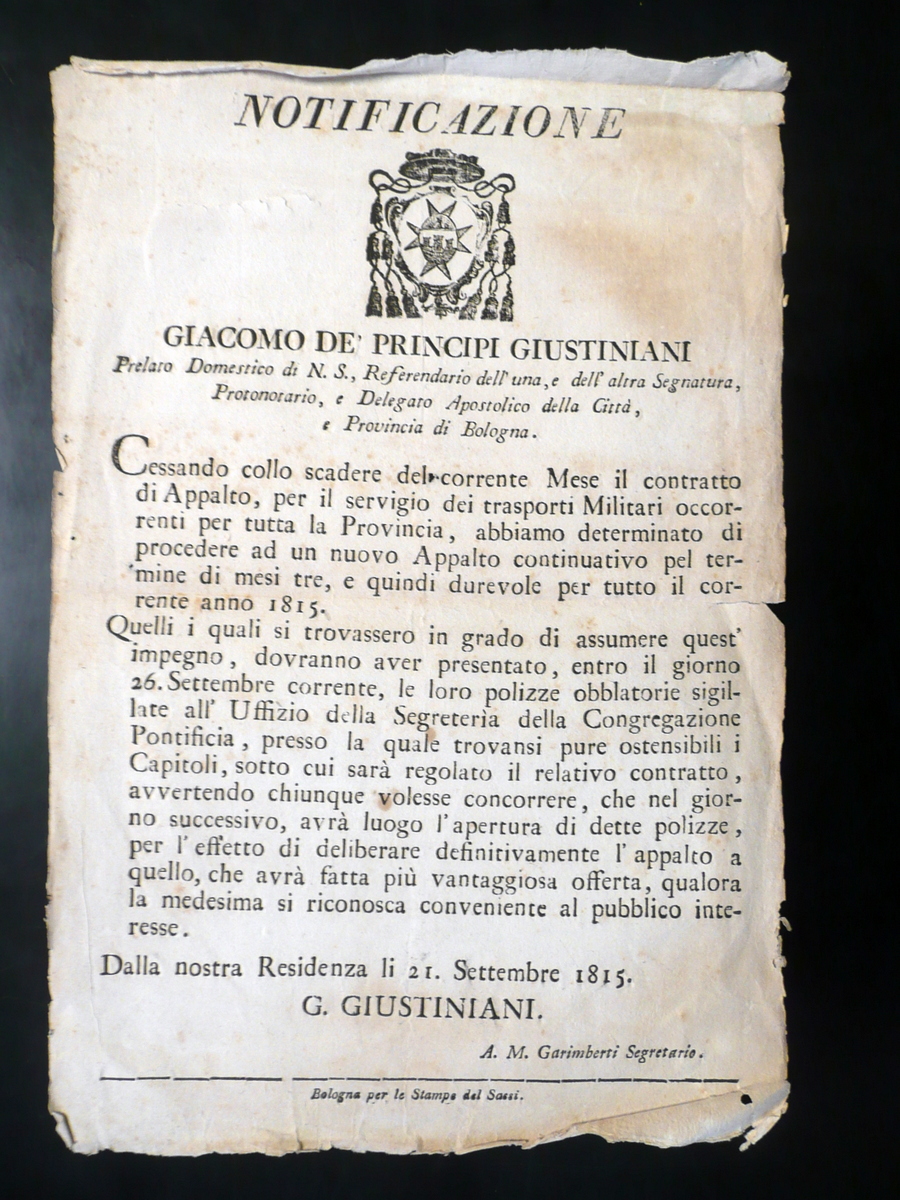 NOTIFICAZIONE
GIACOMO DE' PRINCIPI GIUSTINIANI
Prelato Domestico di N. S., Referendario dell' una, e dell' altra Segnatura,
Protonotario, e Delegato Apostolico della Città,
e Provincia di Bologna.
Cessando collo scadere del corrente Mese il contratto
di Appalto, per il servigio dei trasporti Militari occor-
renti per tutta la Provincia, abbiamo determinato di
procedere ad un nuovo Appalto continuativo pel ter-
mine di mesi tre, e quindi durevole per tutto il cor-
rente anno 1815.
Quelli i quali si trovassero in grado di assumere quest'
impegno, dovranno aver presentato, entro il giorno
26. Settembre corrente, le loro polizze obblatorie sigil-
late all' Uffizio della Segreterìa della Congregazione
Pontificia, presso la quale trovansi pure ostensibili i
Capitoli, sotto cui sarà regolato il relativo contratto,
avvertendo chiunque volesse concorrere, che nel gior-
no successivo, avrà luogo l'apertura di dette polizze,
per l'effetto di deliberare definitivamente l'appalto a
quello, che avrà fatta più vantaggiosa offerta, qualora
la medesima si riconosca conveniente al pubblico inte-
resse.
Dalla nostra Residenza li 21. Settembre 1815.
G. GIUSTINIANI.
A. M. Garimberti Segretario.
Bologna per le Stampe del Sassi.